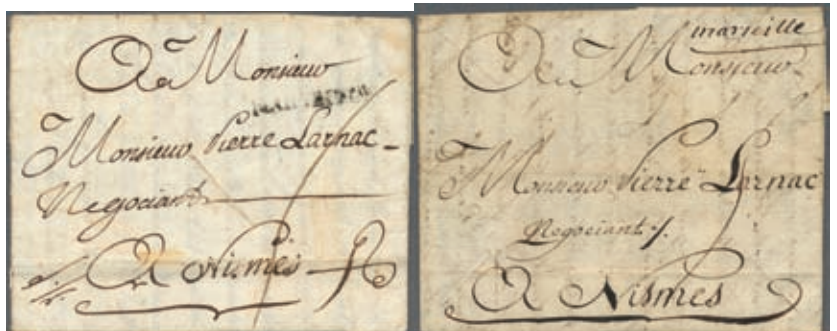 A Monsieur
Monsieur Pierre Larnac
Negociant
A Nismes
marseille
A Monsieur
Monsieur Pierre Larnac
Negociant ./.
A Nismes